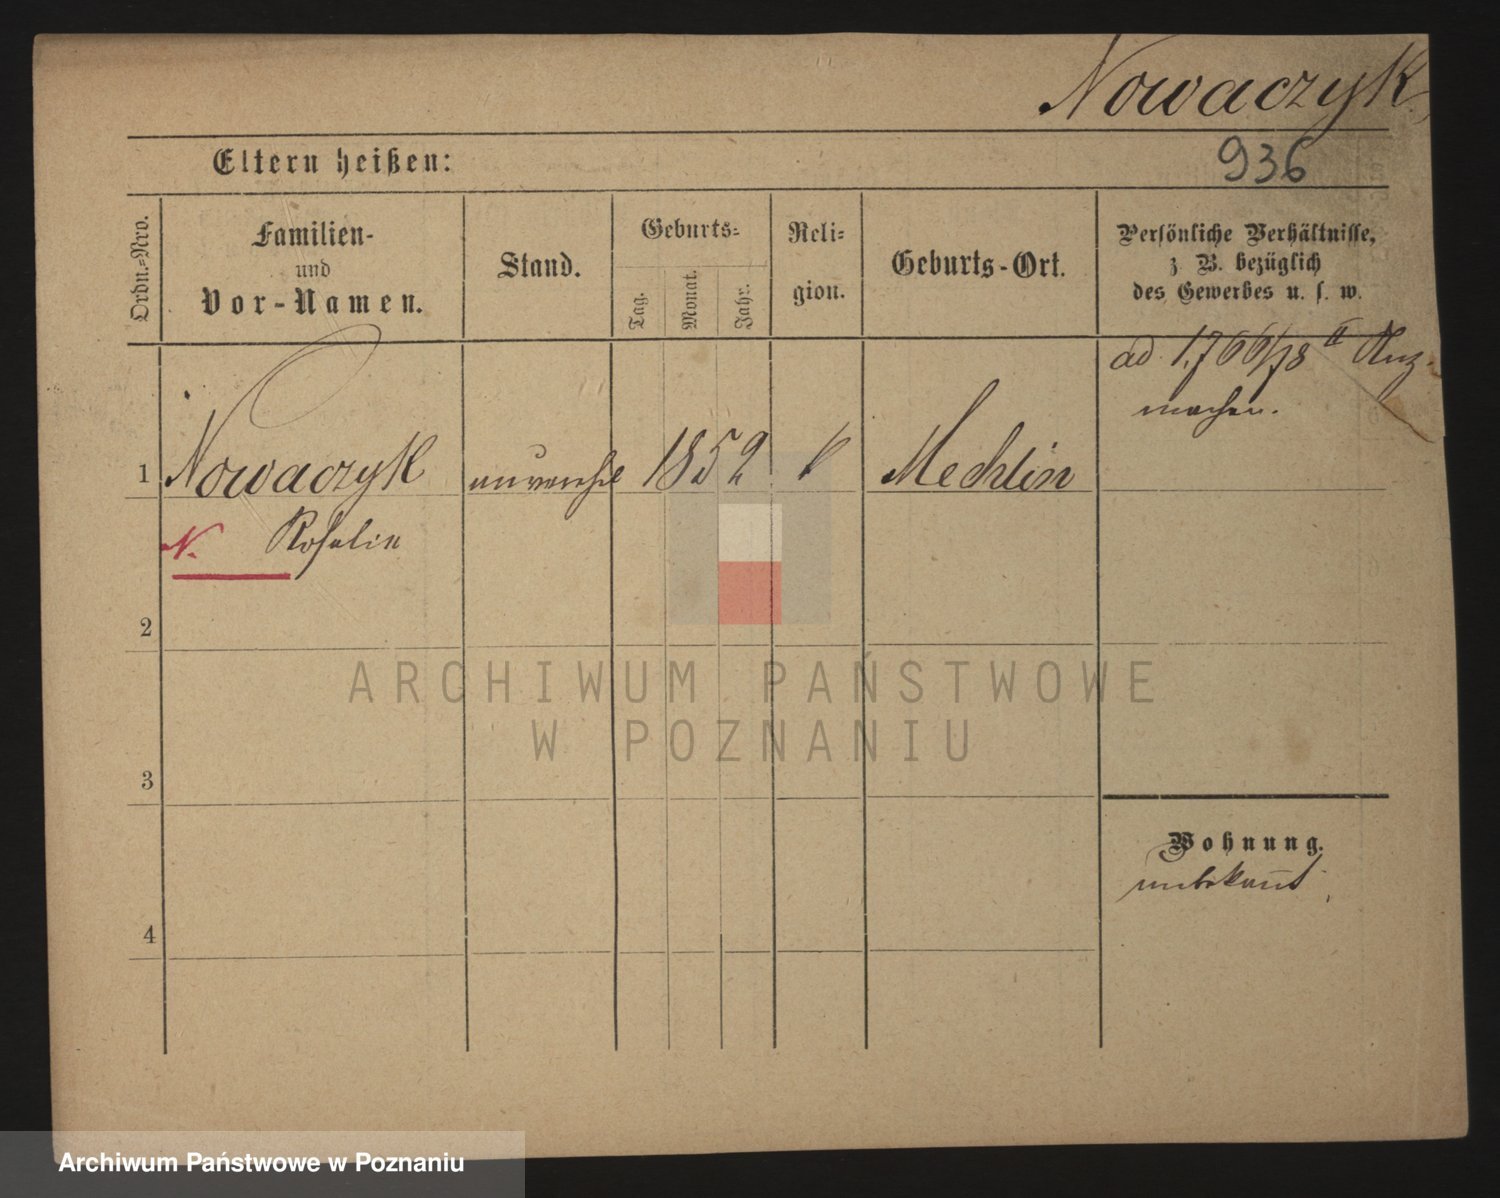 Nowaczyk
Eltern heißen:
936
Ordn.=Nro.
Familien-
und
Vor-Namen.
Stand.
Geburts=
Tag.
Monat.
Jahr.
Reli=
gion.
Geburts-Ort.
Persönliche Verhältnisse,
z. B. bezüglich
des Gewerbes u. s. w.
ad 1,766/78 II
machen.
1 Nowaczyk 1852 k Mechlin
N. Rosalie
2
3
4
Wohnung.
unbekannt
ARCHIWUM PAŃSTWOWE
W POZNANIU
Archiwum Państwowe w Poznaniu